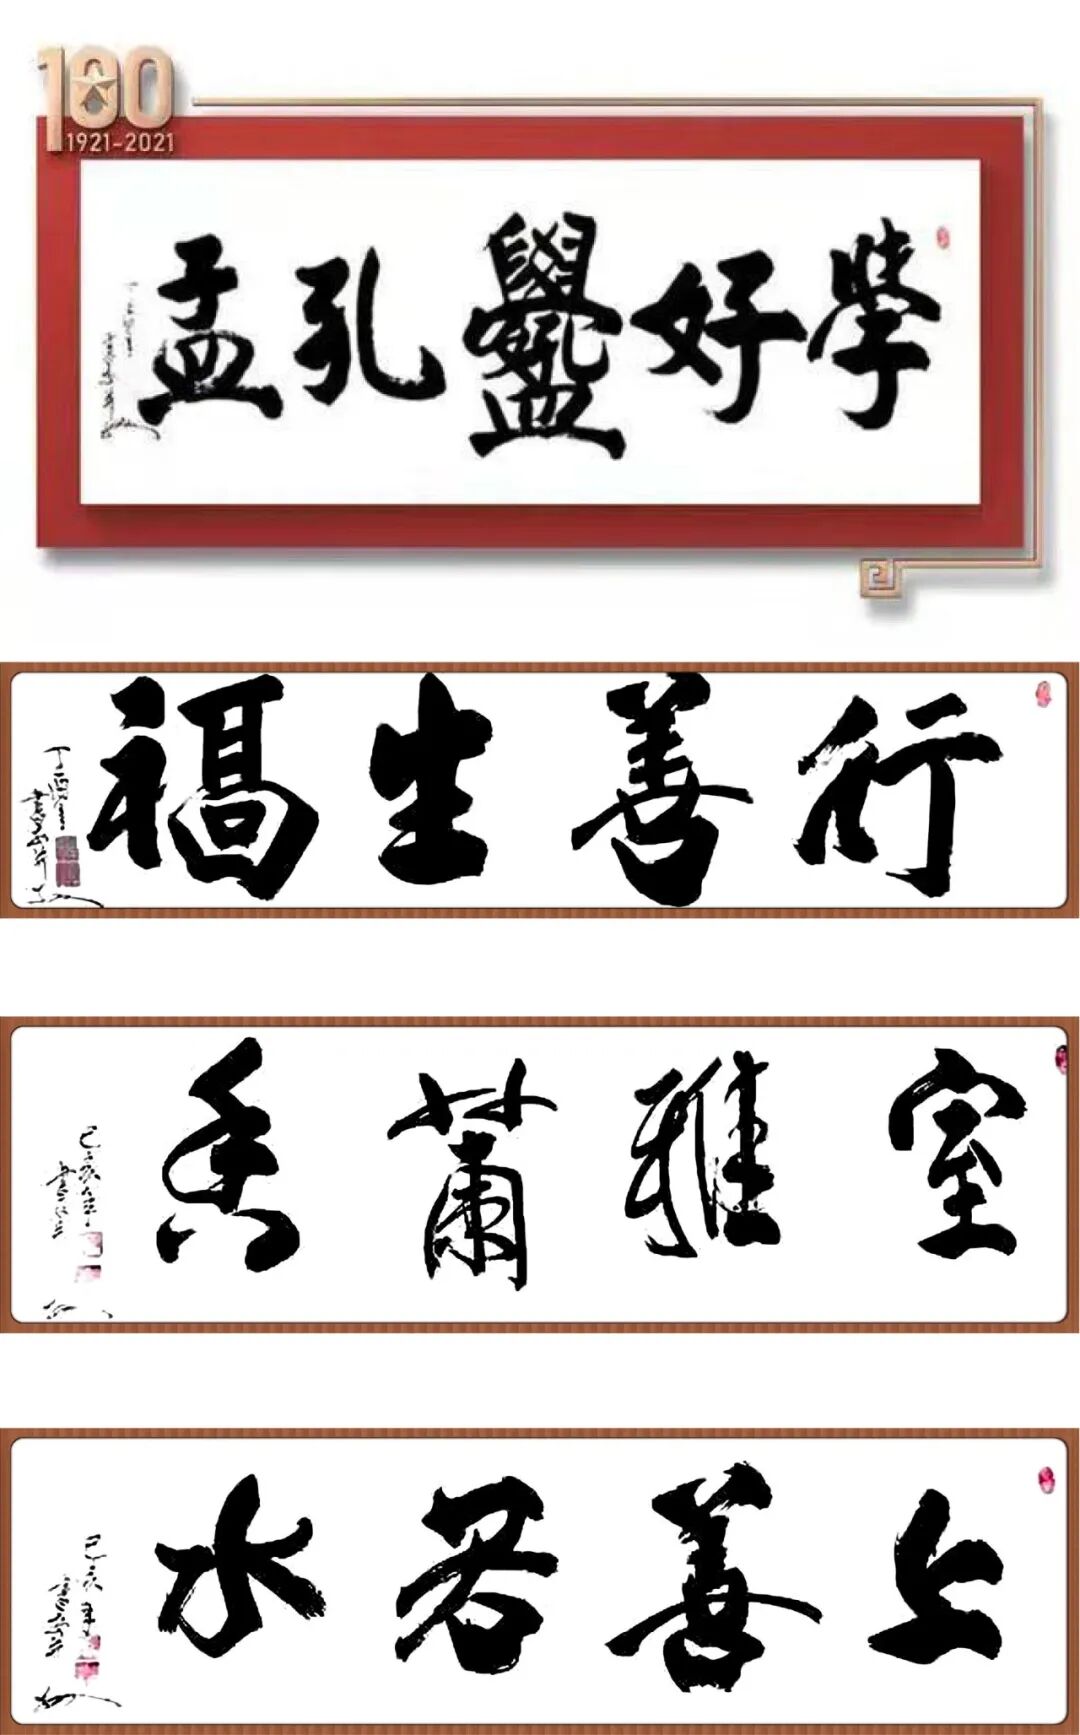 100
1921-2021
學好孔孟
行善生福
室雅蘭香
上善若水